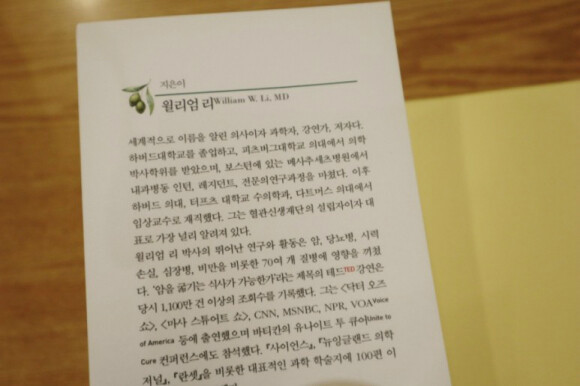 지은이
윌리엄 리William W. Li, MD
세계적으로 이름을 알린 의사이자 과학자, 강연가, 저자다.
하버드대학교를 졸업하고, 피츠버그대학교 의대에서 의학
박사학위를 받았으며, 보스턴에 있는 매사추세츠병원에서
내과병동 인턴, 레지던트, 전문의연구과정을 마쳤다. 이후
하버드 의대, 터프츠 대학교 수의학과, 다트머스 의대에서
임상교수로 재직했다. 그는 혈관신생재단의 설립자이자 대
표로 가장 널리 알려져 있다.
윌리엄 리 박사의 뛰어난 연구와 활동은 암, 당뇨병, 시력
손실, 심장병, 비만을 비롯한 70여 개 질병에 영향을 끼쳤
다. ‘암을 굶기는 식사가 가능한가’라는 제목의 테드TED 강연은
당시 1,100만 건 이상의 조회수를 기록했다. 그는 〈닥터 오즈
쇼〉, 〈마사 스튜어트 쇼〉, CNN, MSNBC, NPR, VOAVoice
of America 등에 출연했으며 바티칸의 유나이트 투 큐어Unite to
Cure 컨퍼런스에도 참석했다. 『사이언스』, 『뉴잉글랜드 의학
저널』, 『란셋』을 비롯한 대표적인 과학 학술지에 100편 이